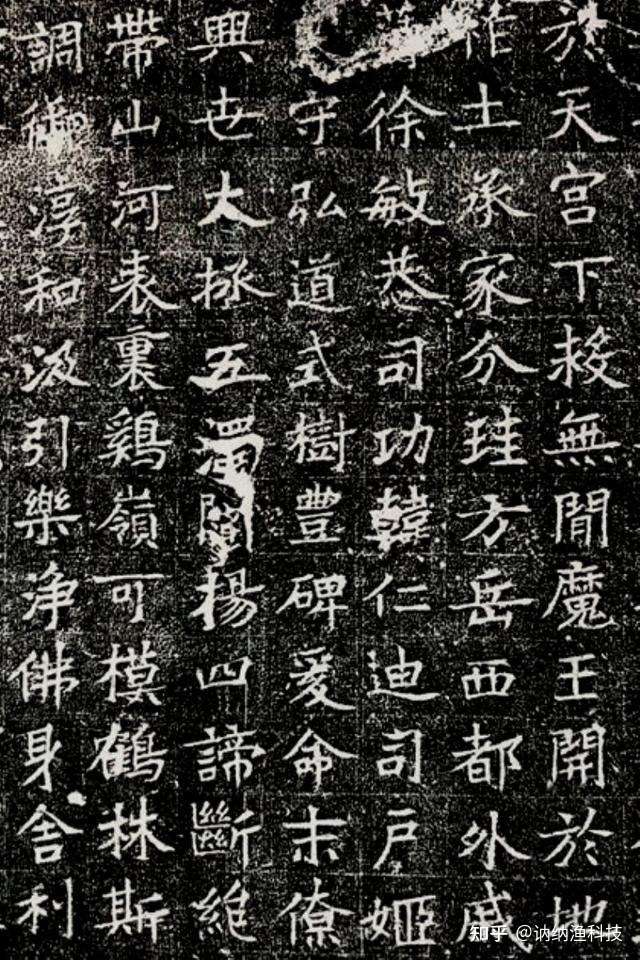 於天宫下救無閒魔王開於地
作土承家分珪方岳西都外戚
徐敏恭司功韓仁迪司戶姬
守弘道式樹豊碑爰命末僚
興世大拯五濁闡楊四諦斷維
帶山河表裏鷄嶺可模鶴林斯
調御淳和汲引樂淨佛身舍利
知乎 @讷纳渔科技